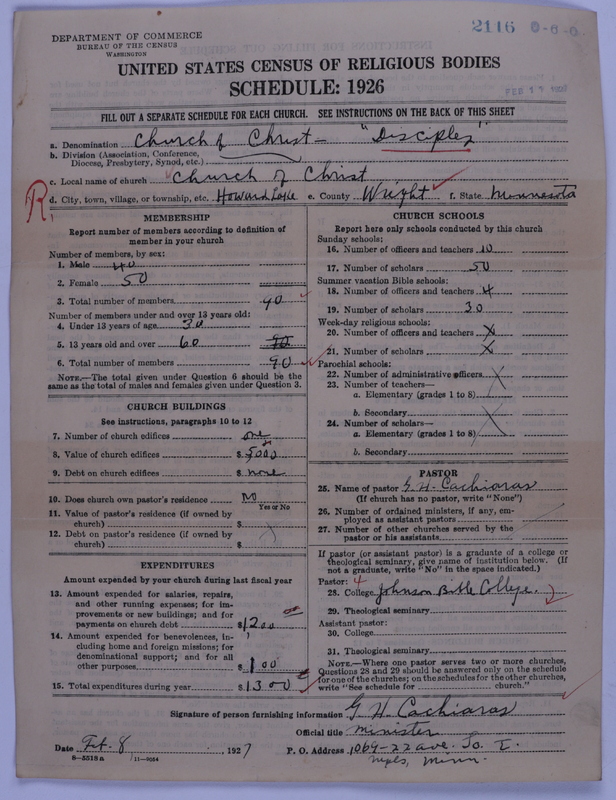 2116 0-6-0
DEPARTMENT OF COMMERCE
BUREAU OF THE CENSUS
WASHINGTON
UNITED STATES CENSUS OF RELIGIOUS BODIES
SCHEDULE: 1926
FEB 11
FILL OUT A SEPARATE SCHEDULE FOR EACH CHURCH. SEE INSTRUCTIONS ON THE BACK OF THIS SHEET
a. Denomination Church of Christ — "Disciples"
b. Division (Association, Conference, Diocese, Presbytery, Synod, etc.)
c. Local name of church Church of Christ
R, d. City, town, village, or township, etc. Howard Lake e. County Wright f. State Minnesota
MEMBERSHIP
Report number of members according to definition of member in your church
Number of members, by sex:
1. Male 40
2. Female 50
3. Total number of members 90
Number of members under and over 13 years old:
4. Under 13 years of age 30
5. 13 years old and over 60 90
6. Total number of members 90
NOTE.—The total given under Question 6 should be the same as the total of males and females given under Question 3.
CHURCH BUILDINGS
See instructions, paragraphs 10 to 12
7. Number of church edifices one
8. Value of church edifices $ 5000
9. Debt on church edifices $ none
10. Does church own pastor's residence No
Yes or No
11. Value of pastor's residence (if owned by church) $
12. Debt on pastor's residence (if owned by church) $
EXPENDITURES
Amount expended by your church during last fiscal year
13. Amount expended for salaries, repairs, and other running expenses; for improvements or new buildings; and for payments on church debt $ 1200
14. Amount expended for benevolences, including home and foreign missions; for denominational support; and for all other purposes $ 100
15. Total expenditures during year $ 1300
CHURCH SCHOOLS
Report here only schools conducted by this church
Sunday schools:
16. Number of officers and teachers 10
17. Number of scholars 50
Summer vacation Bible schools:
18. Number of officers and teachers 4
19. Number of scholars 30
Week-day religious schools:
20. Number of officers and teachers X
21. Number of scholars X
Parochial schools:
22. Number of administrative officers
23. Number of teachers—
a. Elementary (grades 1 to 8)
b. Secondary
24. Number of scholars—
a. Elementary (grades 1 to 8)
b. Secondary
PASTOR
25. Name of pastor G. H. Cachiaras
(If church has no pastor, write "None")
26. Number of ordained ministers, if any, employed as assistant pastors
27. Number of other churches served by the pastor or his assistants
If pastor (or assistant pastor) is a graduate of a college or theological seminary, give name of institution below. (If not a graduate, write "No" in the space indicated.)
Pastor: 4
28. College Johnson Bible College.
29. Theological seminary
Assistant pastor:
30. College
31. Theological seminary
NOTE.—Where one pastor serves two or more churches, Questions 28 and 29 should be answered only on the schedule for one of the churches; on the schedules for the other churches, write "See schedule for church."
Signature of person furnishing information G. H. Cachiaras
Official title minister
Date Feb. 8, 1927 P. O. Address 1069-22 ave. So. E.
mpls, Minn.
8-5518a 11-9054